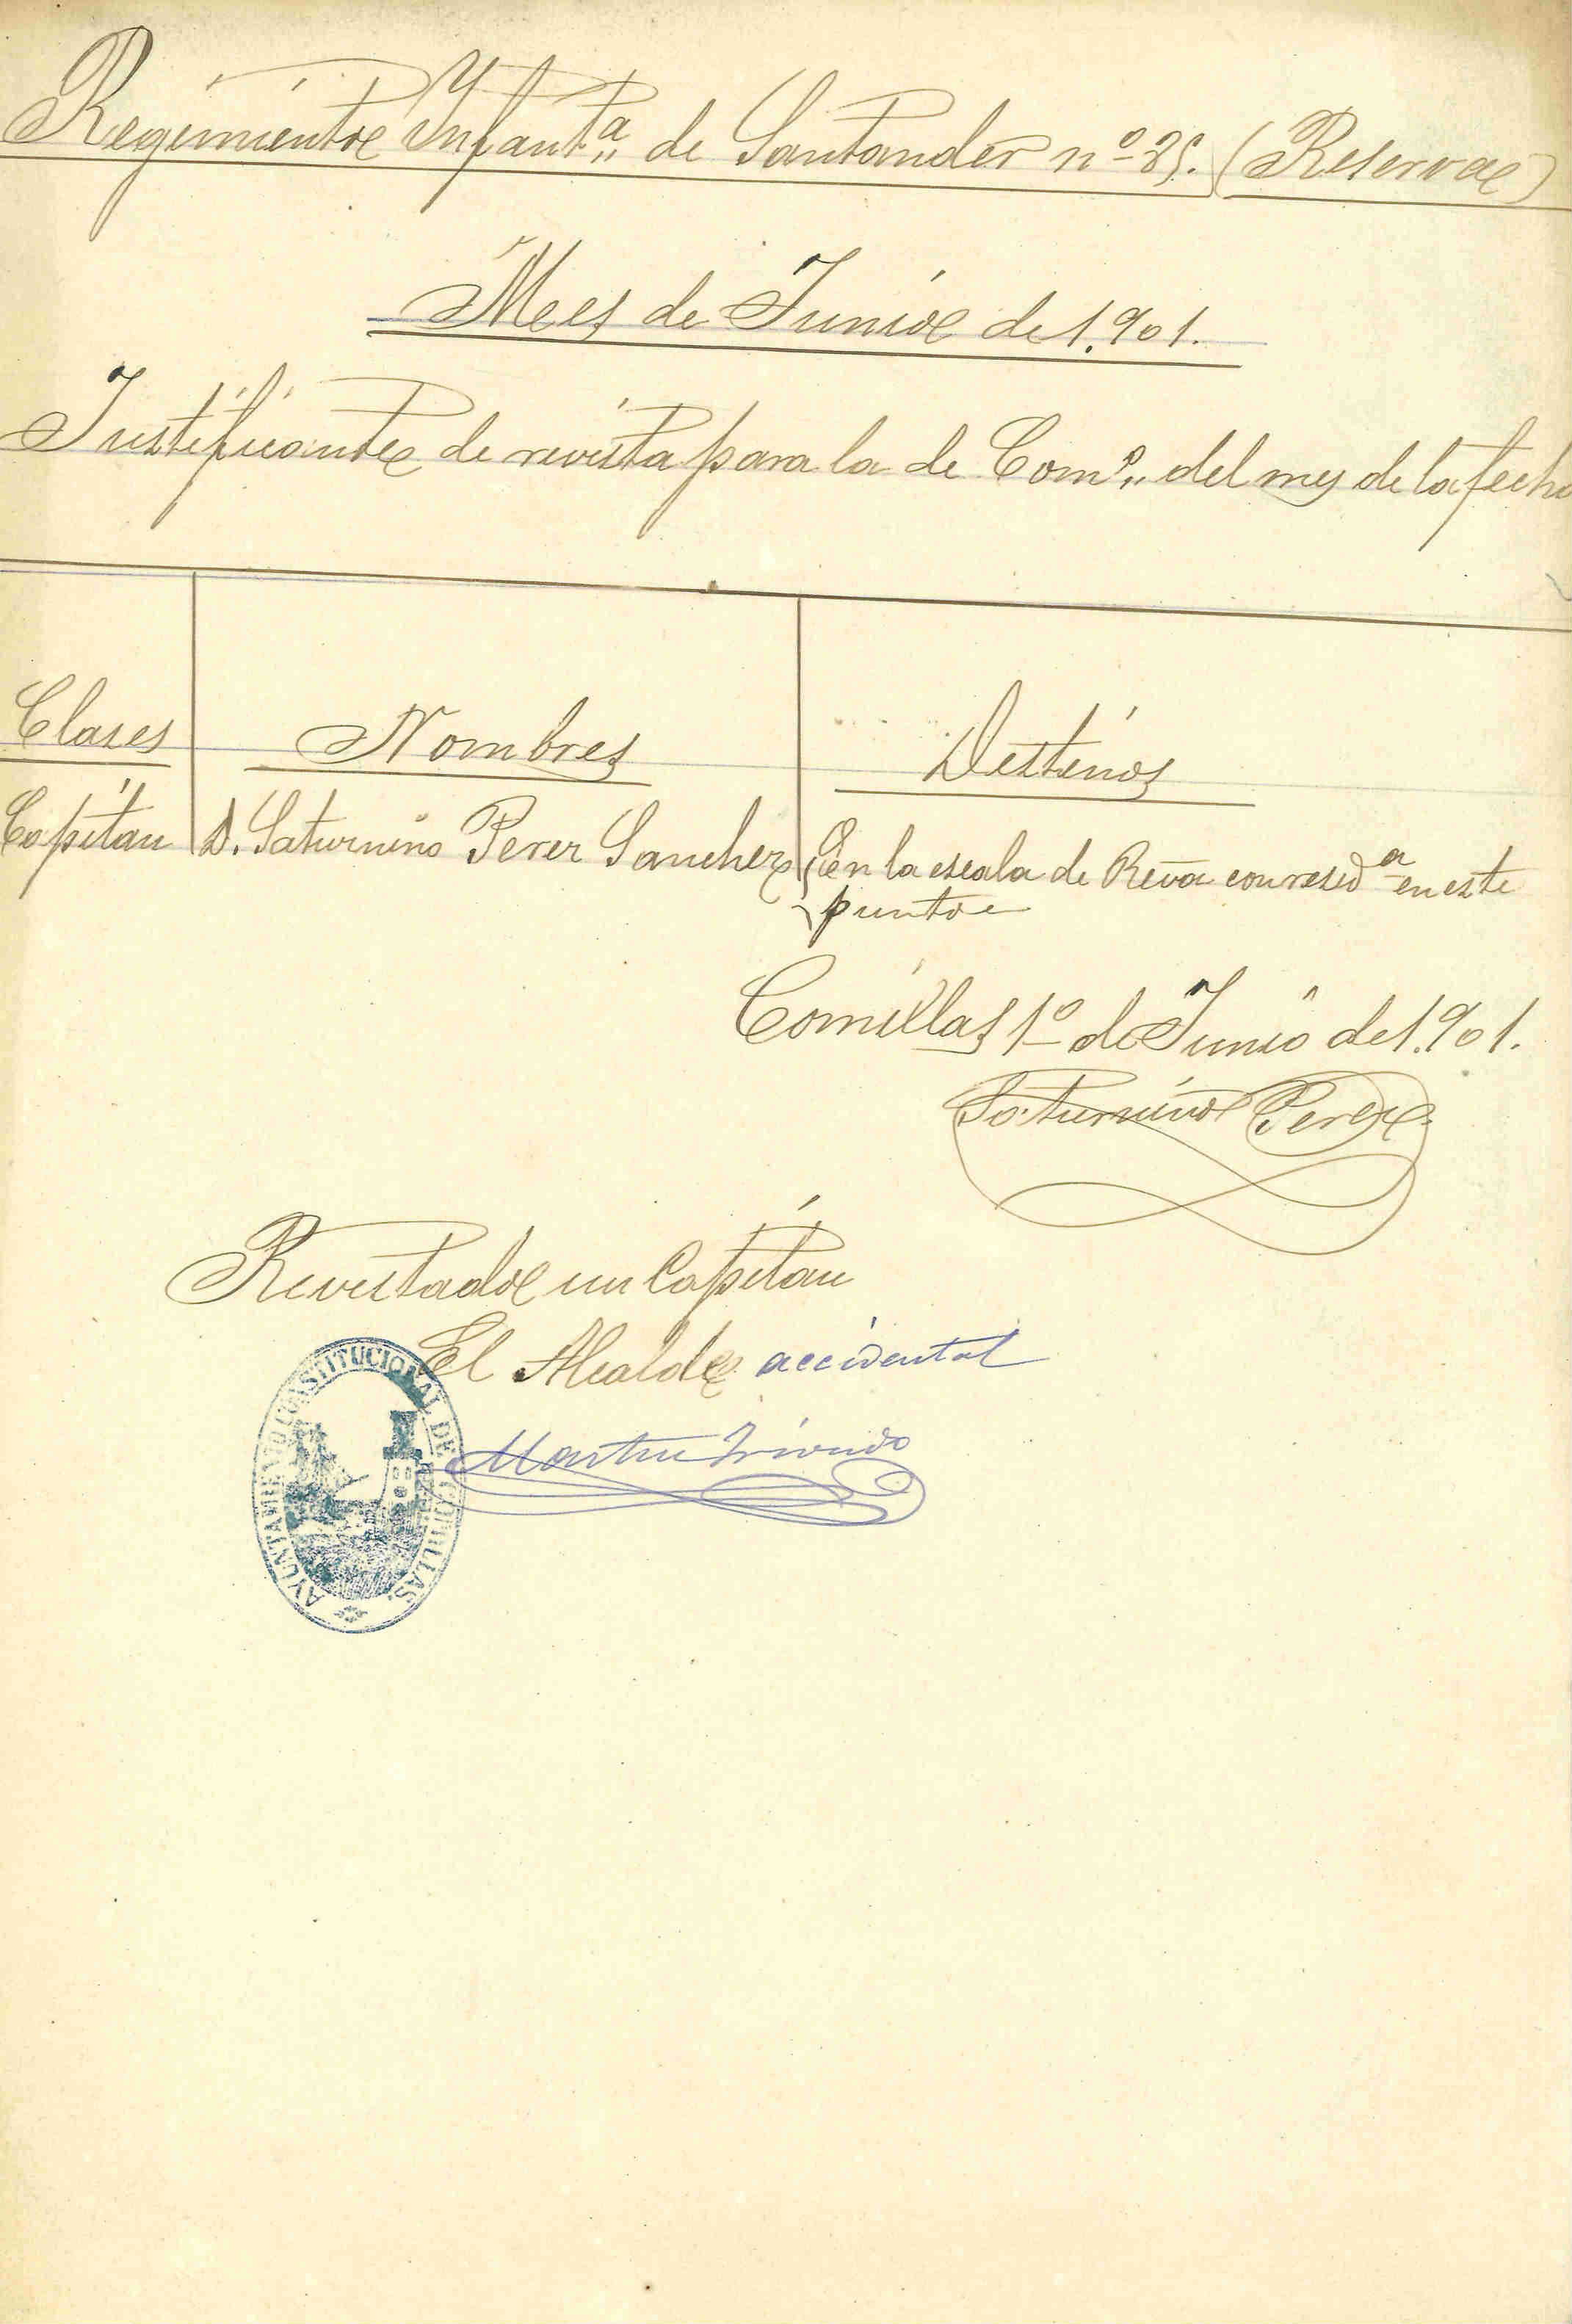 Regimiento Infantª de Santander nº 85. (Reserva)
Mes de Junio de 1.901.
Justificante de revista para la de Comº del mes de la fecha
Clases Nombres Destinos
Capitan D. Saturnino Perez Sanchez En la escala de Rvª con residª en este
punto
Comillas 1º de Junio de 1.901.
Saturnino Perez
Revistado un Capitan
El Alcalde accidental
Martin
AYUNTAMIENTO CONSTITUCIONAL DE COMILLAS